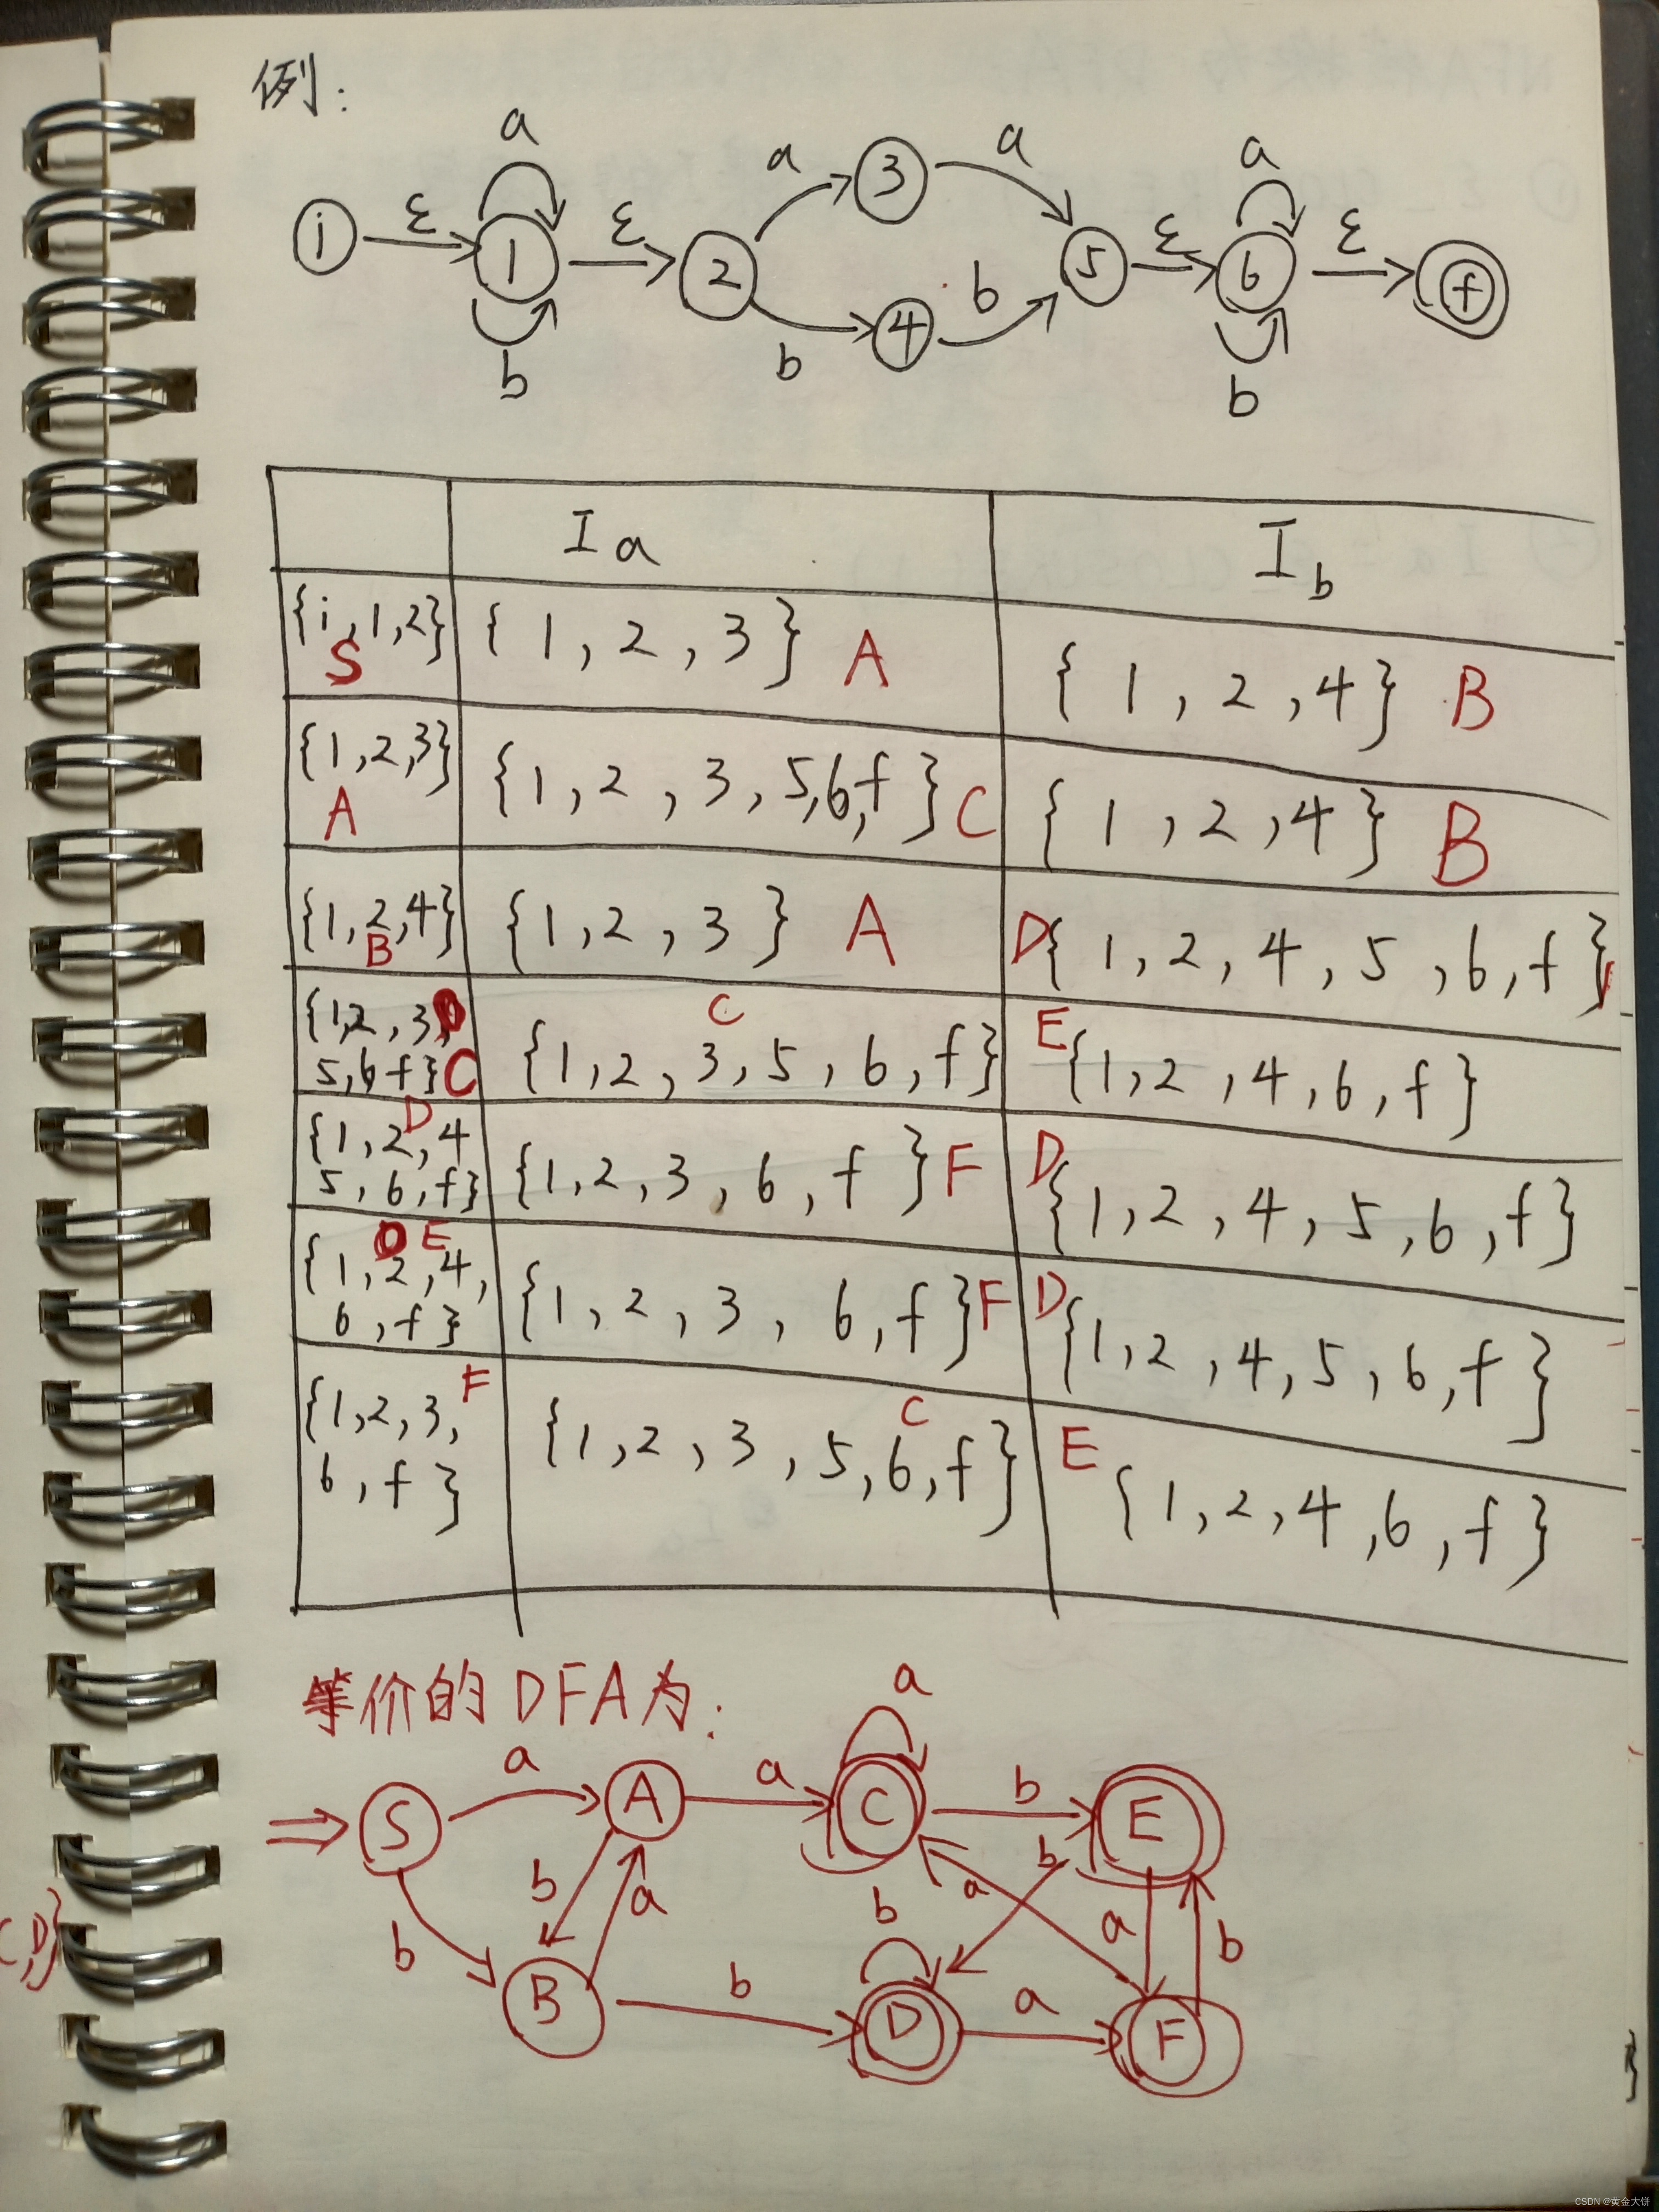 例:
a a a a
i ε 1 ε 2 3 5 ε 6 ε f
b b 4 b b
Ia Ib
{i,1,2} S {1,2,3} A {1,2,4} B
{1,2,3} A {1,2,3,5,6,f} C {1,2,4} B
{1,2,4} B {1,2,3} A D {1,2,4,5,6,f}
{1,2,3, 5,6,f} C {1,2,3,5,6,f} C E {1,2,4,6,f}
{1,2,4 5,6,f} D {1,2,3,6,f} F D {1,2,4,5,6,f}
{1,2,4, 6,f} E {1,2,3,6,f} F D {1,2,4,5,6,f}
{1,2,3, 6,f} F {1,2,3,5,6,f} C E {1,2,4,6,f}
等价的DFA为:
a
S a A a C b E
b b a b a b a b
B b D a F
CSDN @黄金大饼